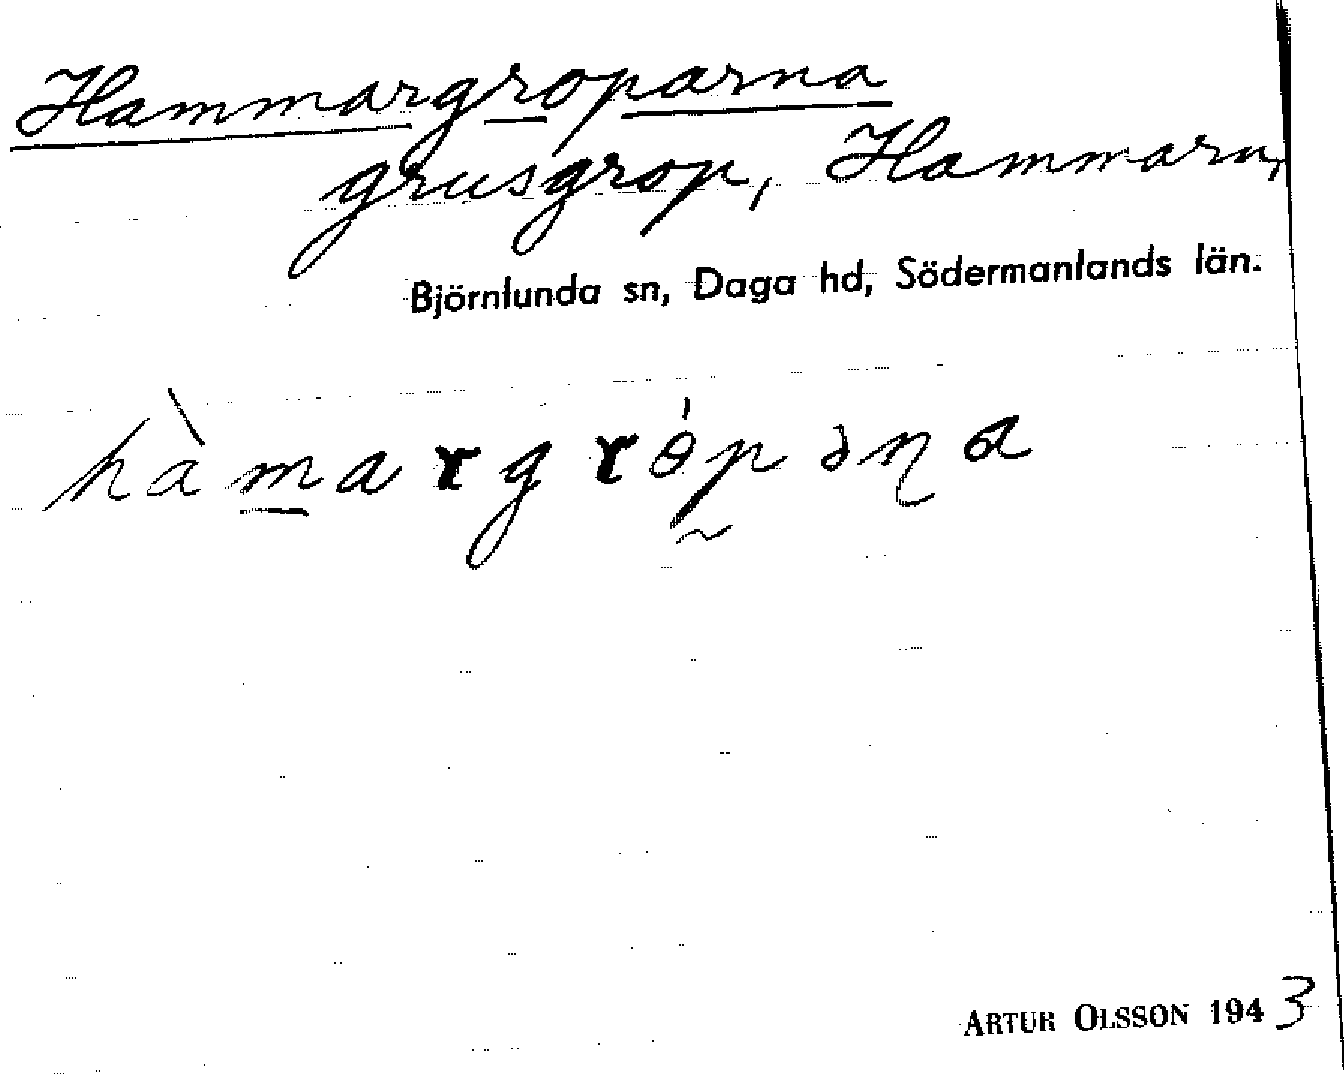 Hammargroparna
grusgrop, Hammarn,
Björnlunda sn, Daga hd, Södermanlands län.
hàmargrópəɳa
ARTUR OLSSON 1943